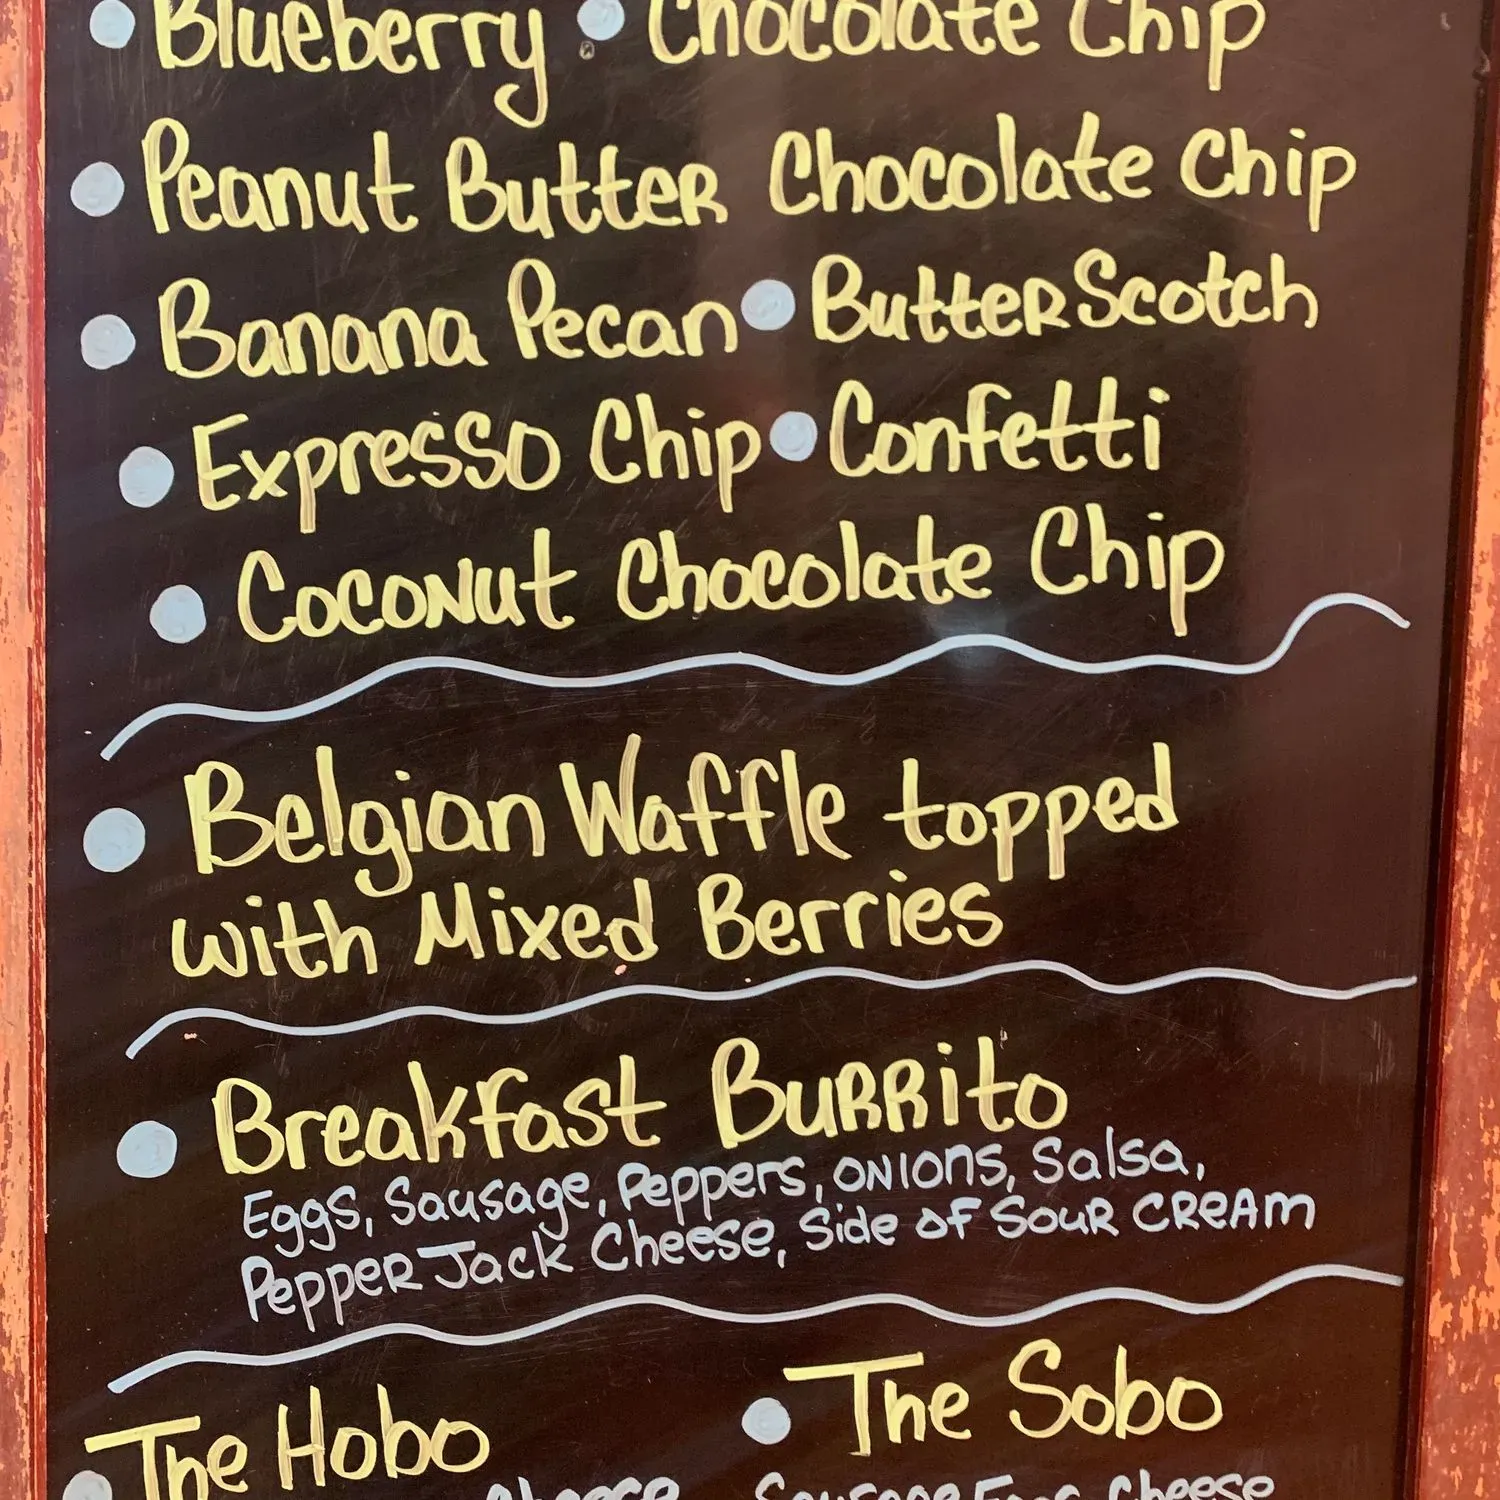 Blueberry • Chocolate Chip
• Peanut Butter Chocolate Chip
• Banana Pecan • ButterScotch
• Expresso Chip • Confetti
• Coconut Chocolate Chip
• Belgian Waffle topped
with Mixed Berries
• Breakfast Burrito
Eggs, Sausage, Peppers, ONIONS, Salsa,
Pepper Jack Cheese, Side of Sour Cream
• The Hobo • The Sobo
Cheese Sausage, Eggs, Cheese